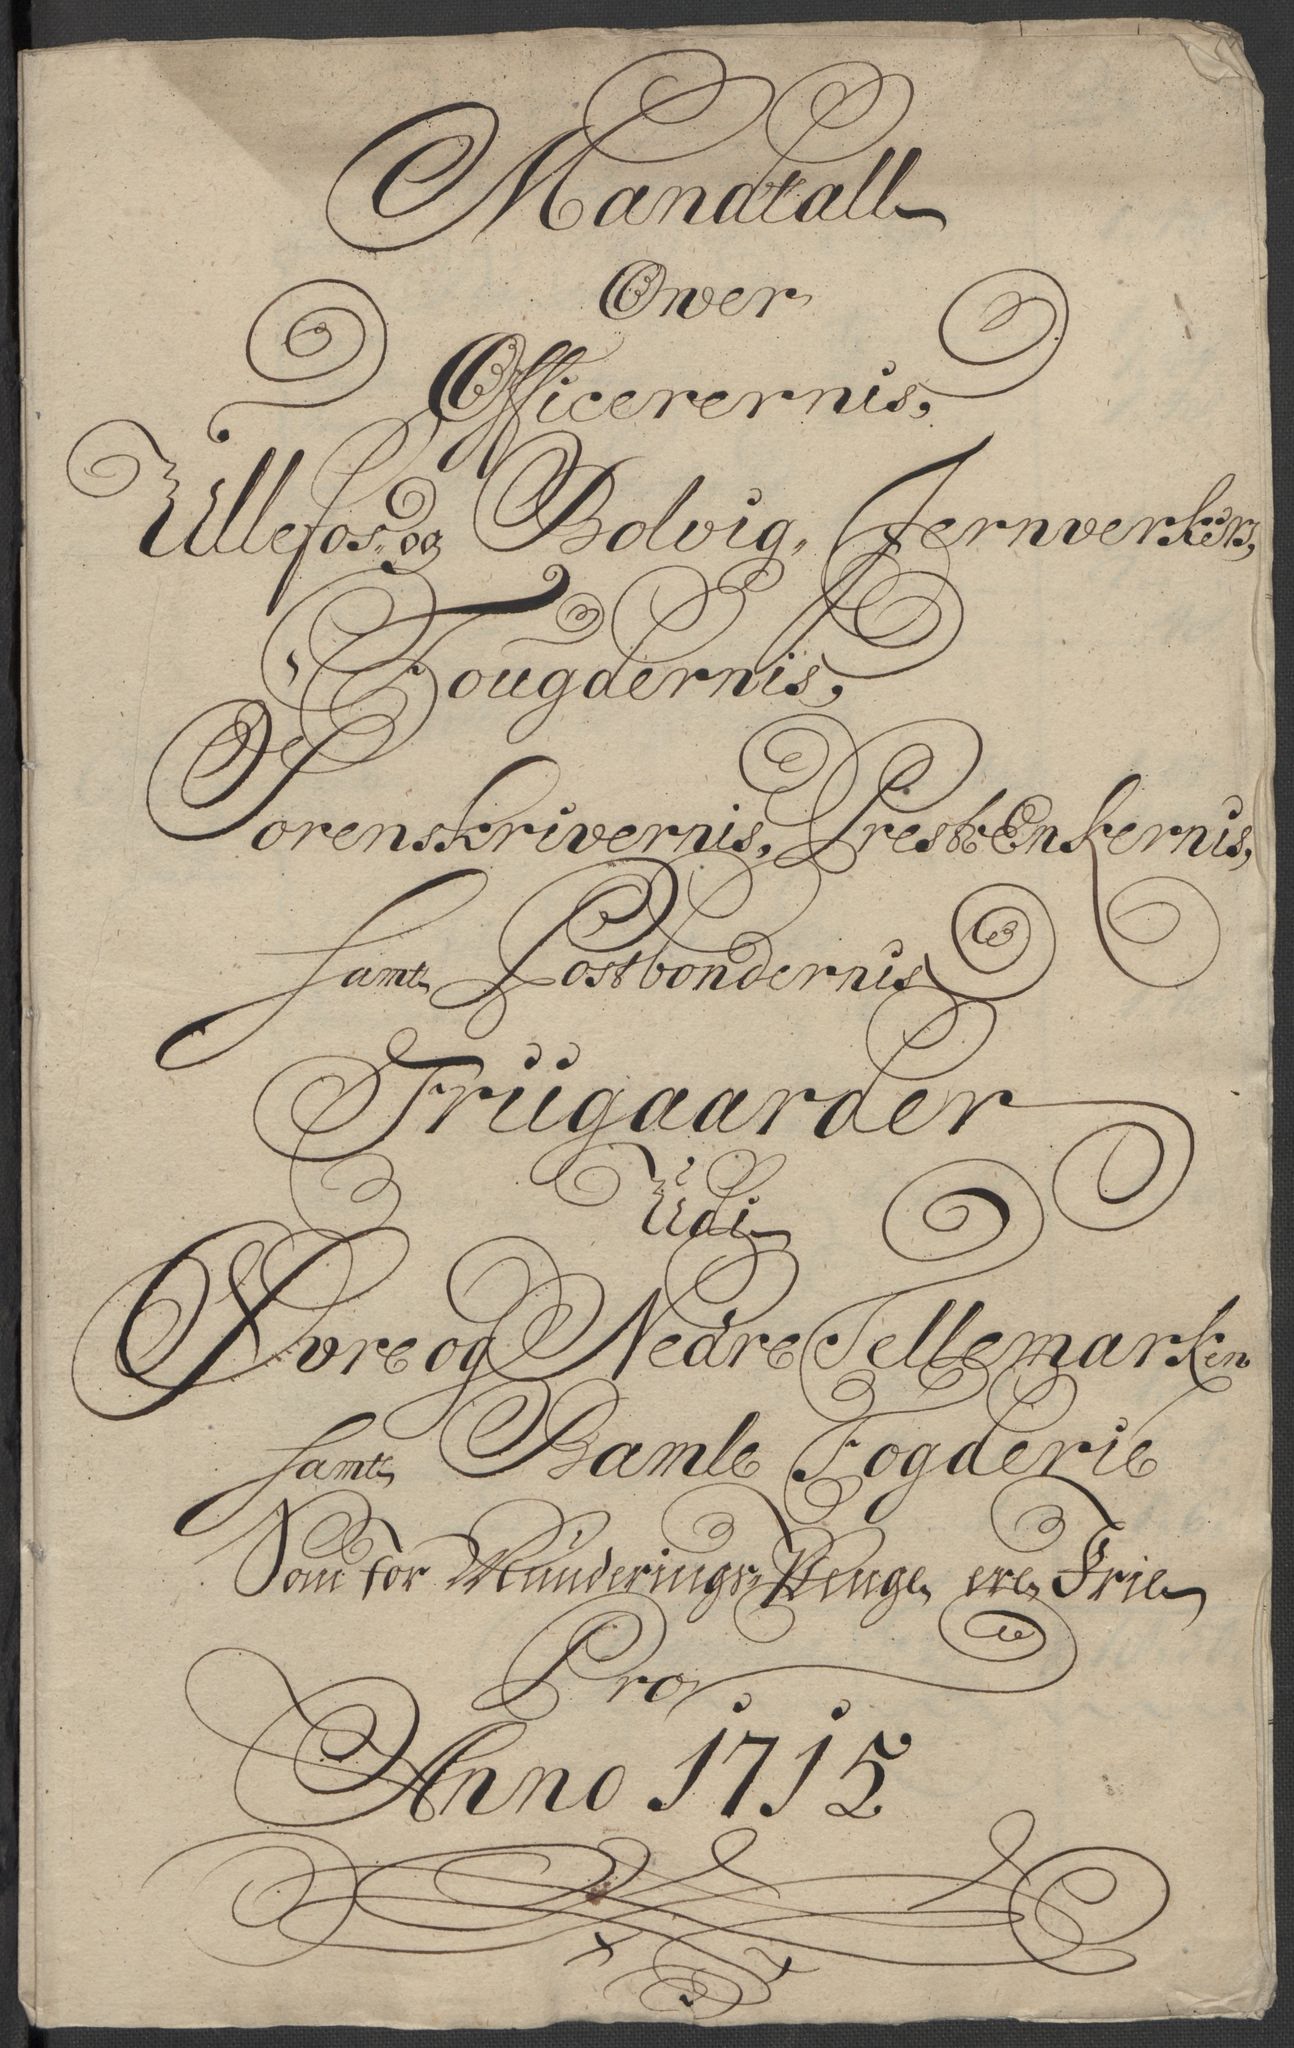 Mandtall
Over
Officerernis,
Ullefos, og Bolvig, Jernverkers,
Fougdernis,
Sorenskrivernis, PrestEnkernis,
samt Postbondernis
Friigaarder
Udi
Øvre og Nedre Tellemarken
samt Bamle Fogderie
Som for Munderings Penge ere Frie
Pro
Anno 1715